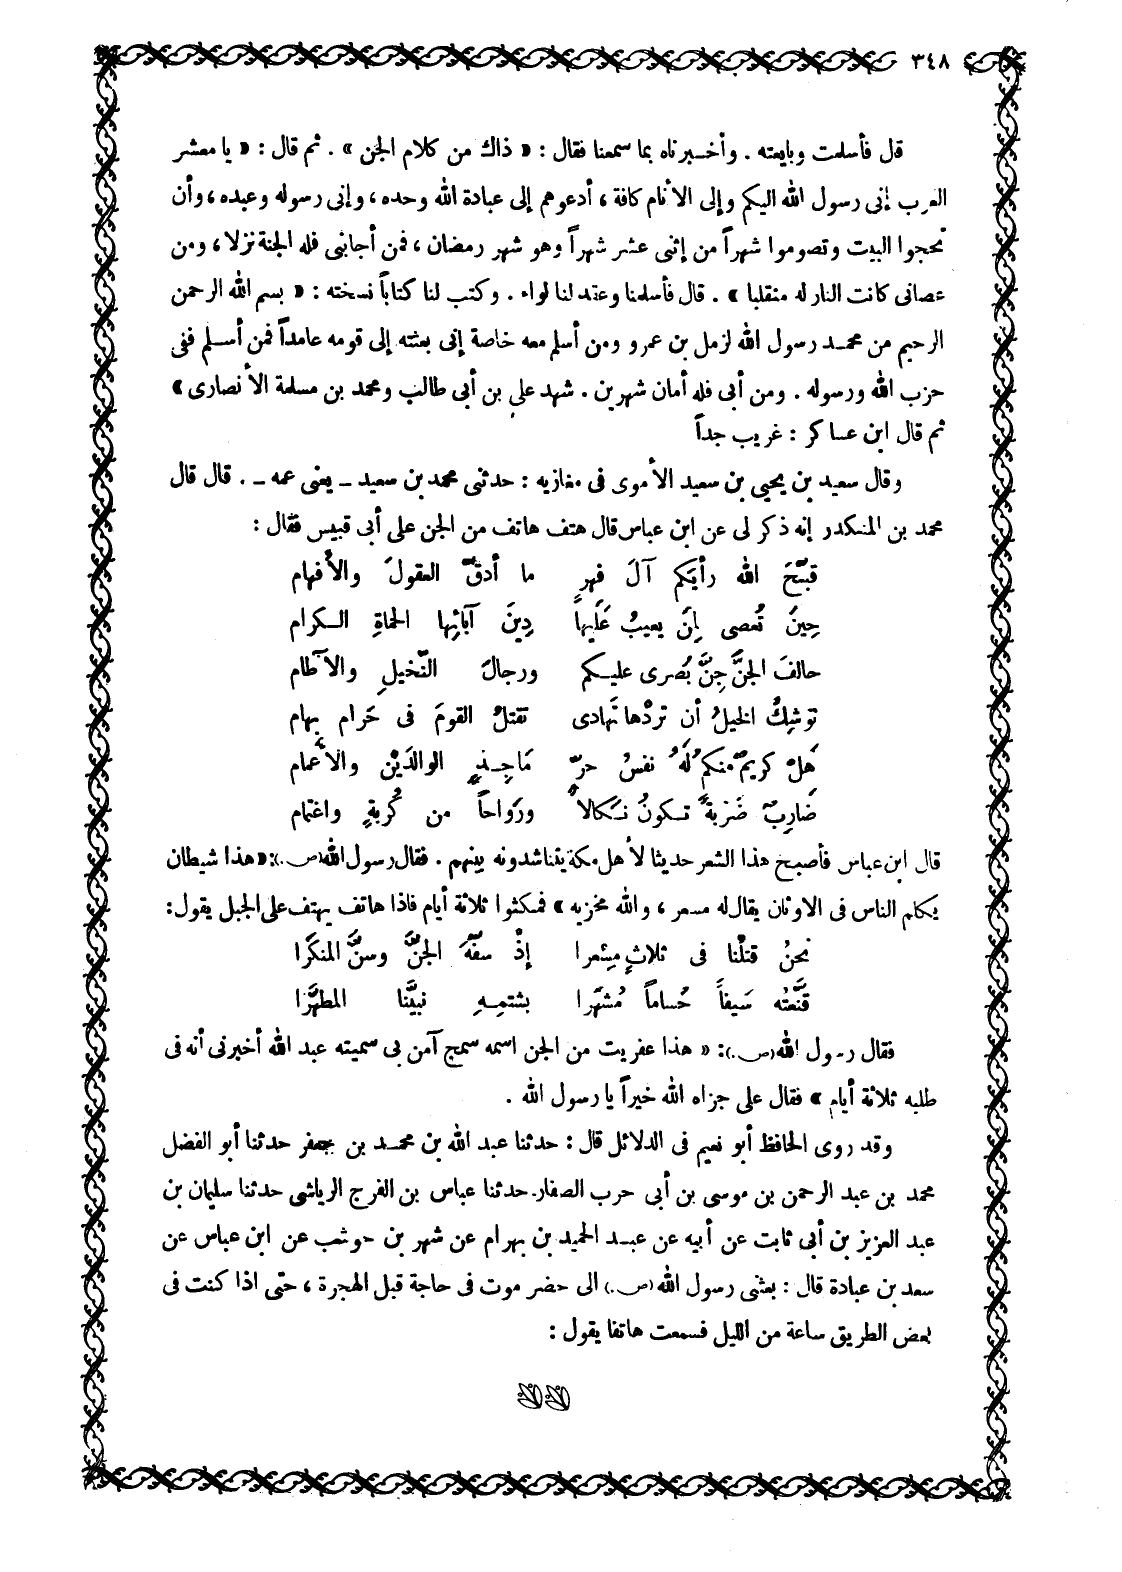 ٣٤٨
قل فأسلمت وبايعته . وأخبرناه بما سمعنا فقال : « ذاك من كلام الجن » . ثم قال : « يا معشر
العرب إنى رسول الله اليكم وإلى الأنام كافة ، أدعوهم إلى عبادة الله وحده ، وإنى رسوله وعبده ، وأن
تحجوا البيت وتصوموا شهراً من إثنى عشر شهراً وهو شهر رمضان ، فمن أجابنى فله الجنة نزلا ، ومن
عصانى كانت النار له منقلبا » . قال فأسلمنا وعقد لنا لواء . وكتب لنا كتاباً نسخته : « بسم الله الرحمن
الرحيم من محمد رسول الله لزمل بن عمرو ومن أسلم معه خاصة إنى بعثته إلى قومه عامداً فمن أسلم ففى
حزب الله ورسوله . ومن أبى فله أمان شهرين . شهد على بن أبى طالب ومحمد بن مسلمة الأنصارى »
ثم قال ابن عساكر : غريب جداً
وقال سعيد بن يحيى بن سعيد الأموى فى مغازيه : حدثنى محمد بن سعيد ــ يعنى عمه ــ . قال قال
محمد بن المنكدر إنه ذكر لى عن ابن عباس قال هتف هاتف من الجن على أبى قبيس فقال :
قبّحَ الله رأيَكم آلَ فهرٍ ما أدقّ العقولَ والأفهام
حِينَ تُعصى لِمَن يعيبُ عَلَيها دِينَ آبائِها الحماةِ الكرام
حالفَ الجنَّ جِنَّ بُصرى عليكم ورجالَ النّخيلِ والآطام
توشِكُ الخيلُ أن تردْها تَهادى تقتلُ القومَ فى حَرام بهام
هَلْ كريمٌ منكمُ لَهُ نفسُ حرّ مَاجِدِ الوالدَيْنِ والأعمام
ضَارِبٌ ضَرْبةً تكونُ نكالاً ورَواحاً من كُربةٍ واغتمام
قال ابن عباس فأصبح هذا الشعر حديثا لأهل مكة يتناشدونه بينهم . فقال رسول الله (ص.) : « هذا شيطان
يكلم الناس فى الاوثان يقال له مسعر ، والله مخزيه » فمكثوا ثلاثة أيام فاذا هاتف يهتف على الجبل يقول :
نحنُ قتلْنا فى ثلاثٍ مِسْعرا إذْ سفّهَ الجنَّ وسنَّ المنكَرا
قنَّعتُه سَيفاً حُساماً مُشهّرا بشتمِهِ نبيَّنا المطهَّرا
فقال رسول الله (ص.) : « هذا عفريت من الجن اسمه سمج آمن بى سميته عبد الله أخبرنى أنه فى
طلبه ثلاثة أيام » فقال على جزاه الله خيراً يا رسول الله .
وقد روى الحافظ أبو نعيم فى الدلائل قال : حدثنا عبد الله بن محمد بن جعفر حدثنا أبو الفضل
محمد بن عبد الرحمن بن موسى بن أبى حرب الصفار ـ حدثنا عباس بن الفرج الرياشى حدثنا سليمان بن
عبد العزيز بن أبى ثابت عن أبيه عن عبد الحميد بن بهرام عن شهر بن حوشب عن ابن عباس عن
سعد بن عبادة قال : بعثنى رسول الله (ص.) الى حضر موت فى حاجة قبل الهجرة ، حتى اذا كنت فى
بعض الطريق ساعة من الليل فسمعت هاتفا يقول :